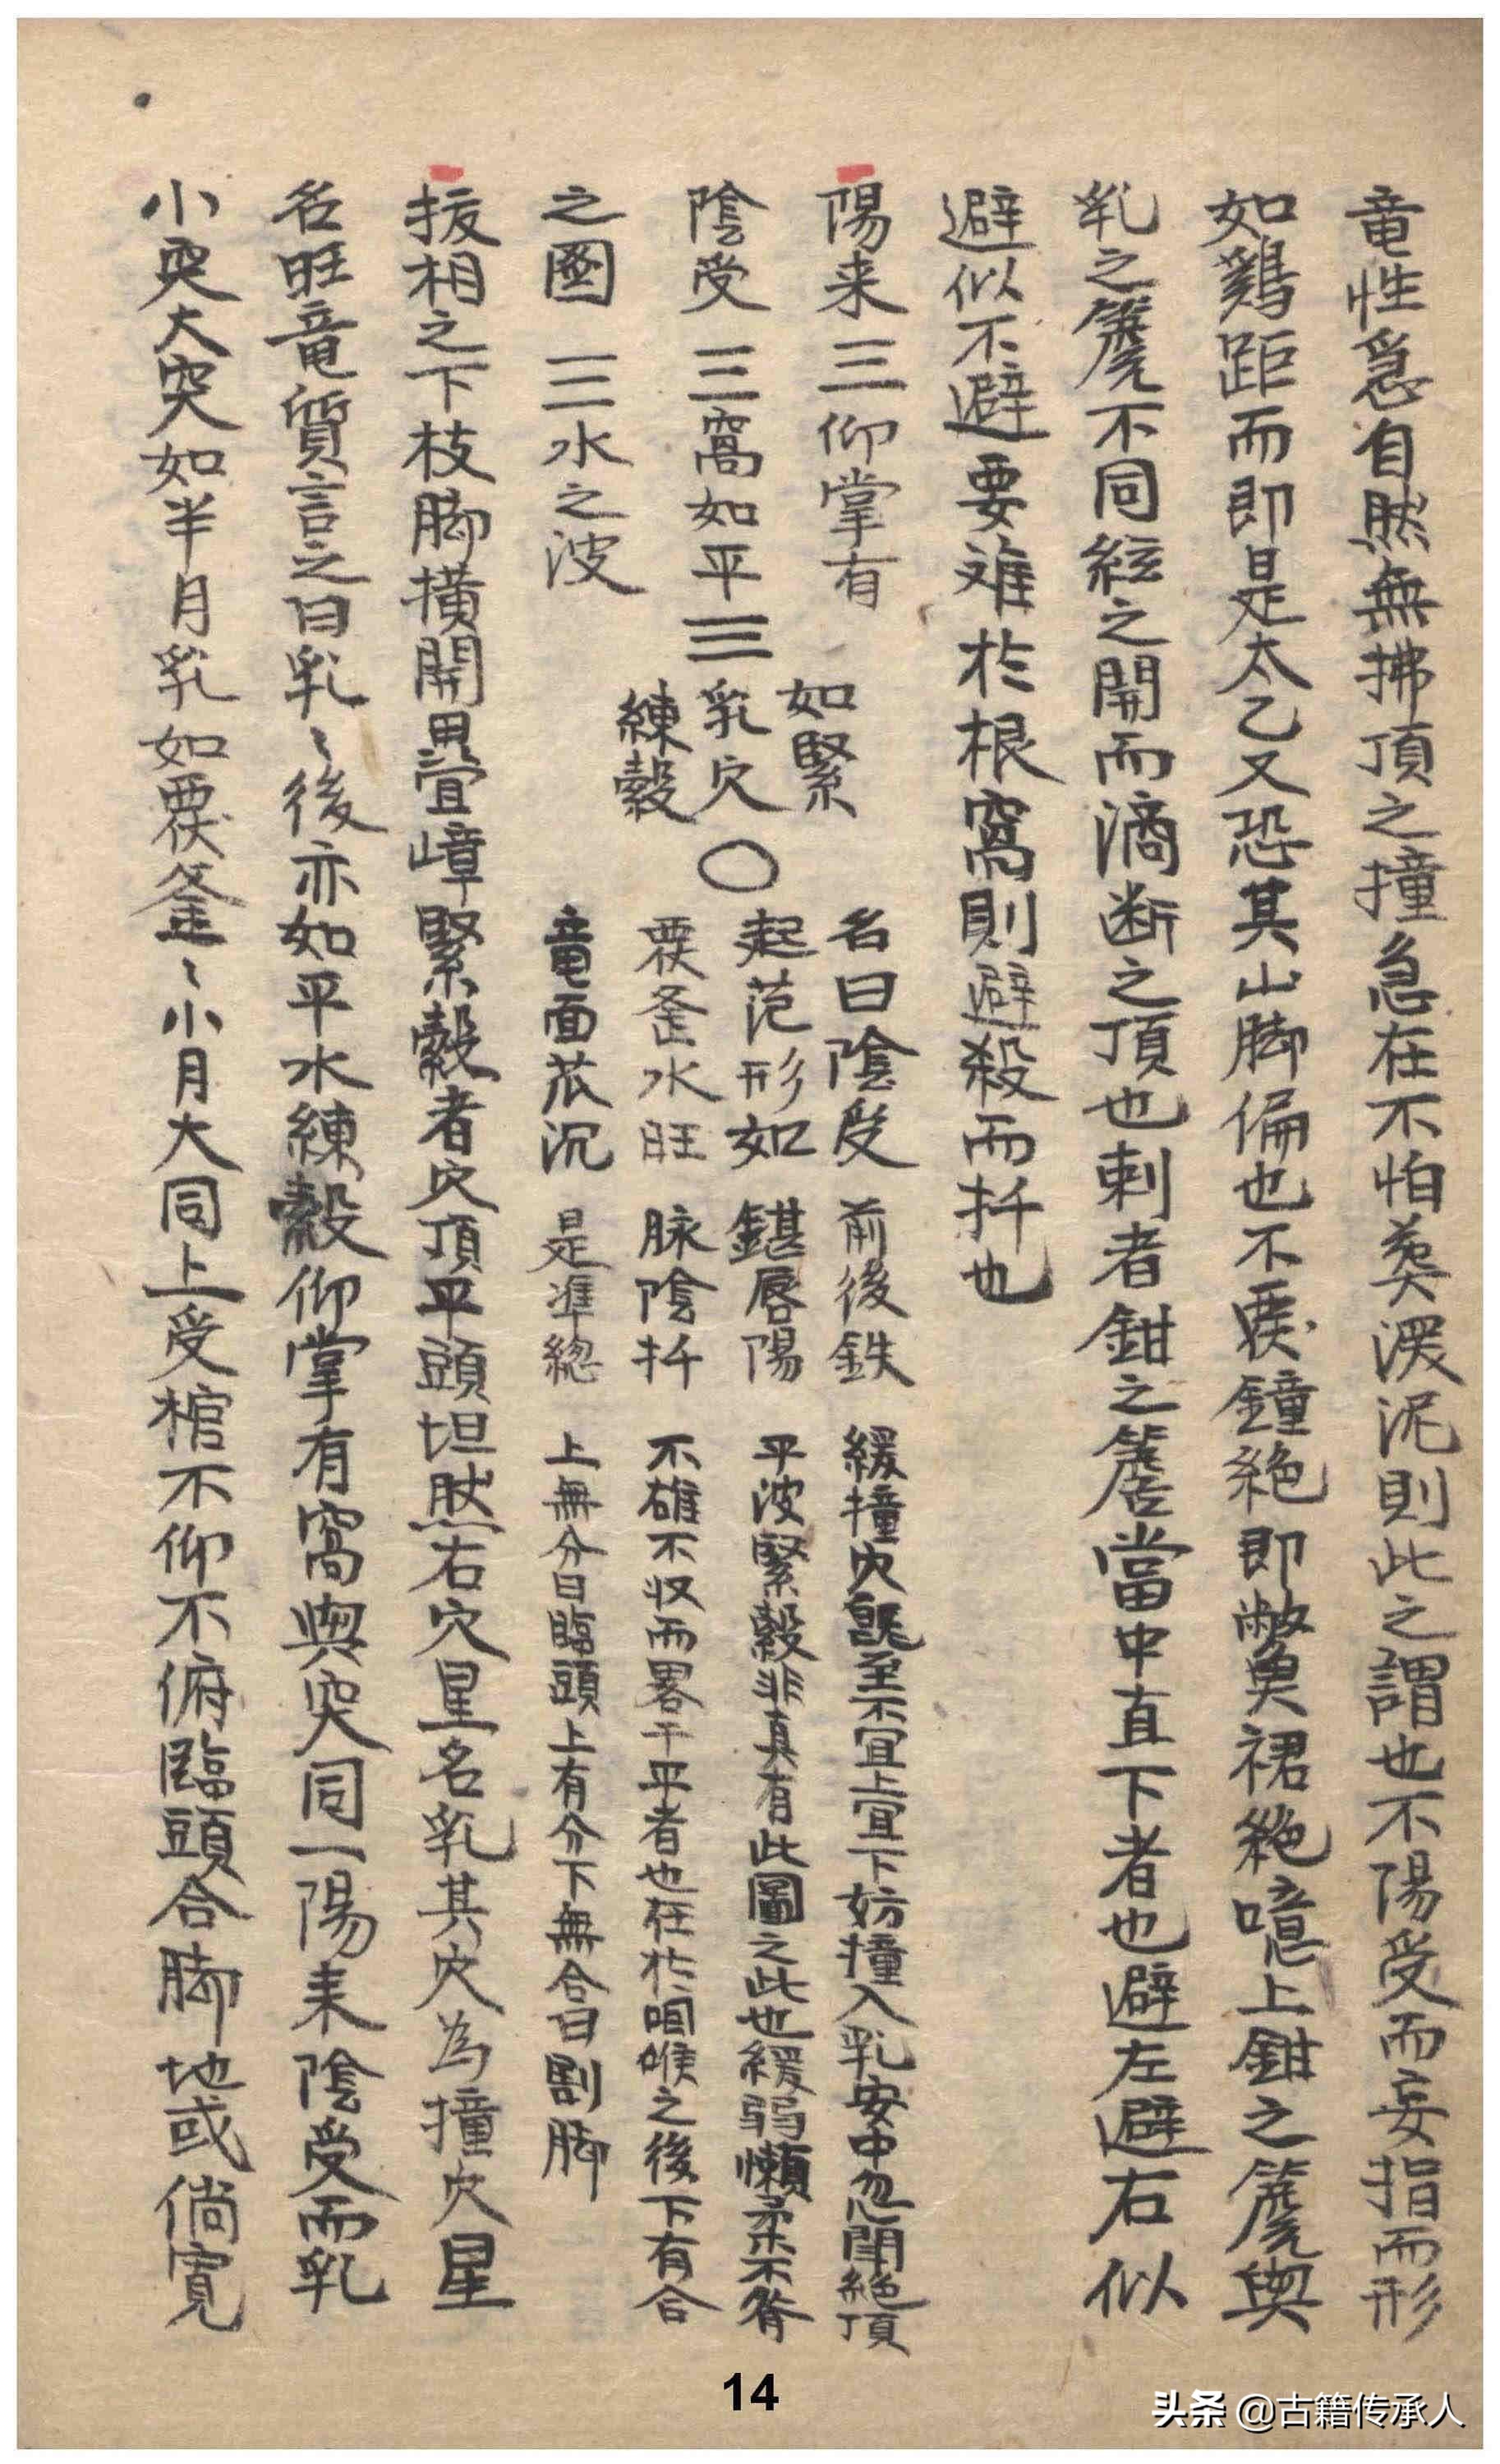 竜性急自然無拂頂之撞急在不怕葬深泥則此之謂也不陽受而妄指而形
如鷄距而即是太乙又恐其山脚偏也不鐘絕即鱉裙絕噫上鉗之簷與
乳之簷不同絃之開而滴断之頂也剌者鉗之簷當中直下者也避左避右似
避似不避要难於根窩則避殺而扦也
陽来三仰掌有
陰受三窩如平三
之國三水之波
如緊
乳穴
練縠
〇
名曰陰受
起范形如
歪水旺
竜面沉
前後鉄
鍖唇陽
脉陰扦
是準總
緩撞穴既至不宜上宜下妨撞入乳安中忽闻絕頂
平波緊縠非真有此圖之此也緩弱懶柔不脊
不雄不収而畧平者也在於咽喉之後下有合
上無分曰臨頭上有分下無合曰割脚
拔相之下枝脚横開疊嶂緊縠者穴頂平頭坦然右穴星名乳其穴為撞穴星
名旺竜質言之曰乳〻後亦如平水練縠仰掌有窩與突同一陽来陰受而乳
小突大突如半月乳如釜〻小月大同上受棺不仰不俯臨頭合脚地或倘寬
14
头条 @古籍传承人